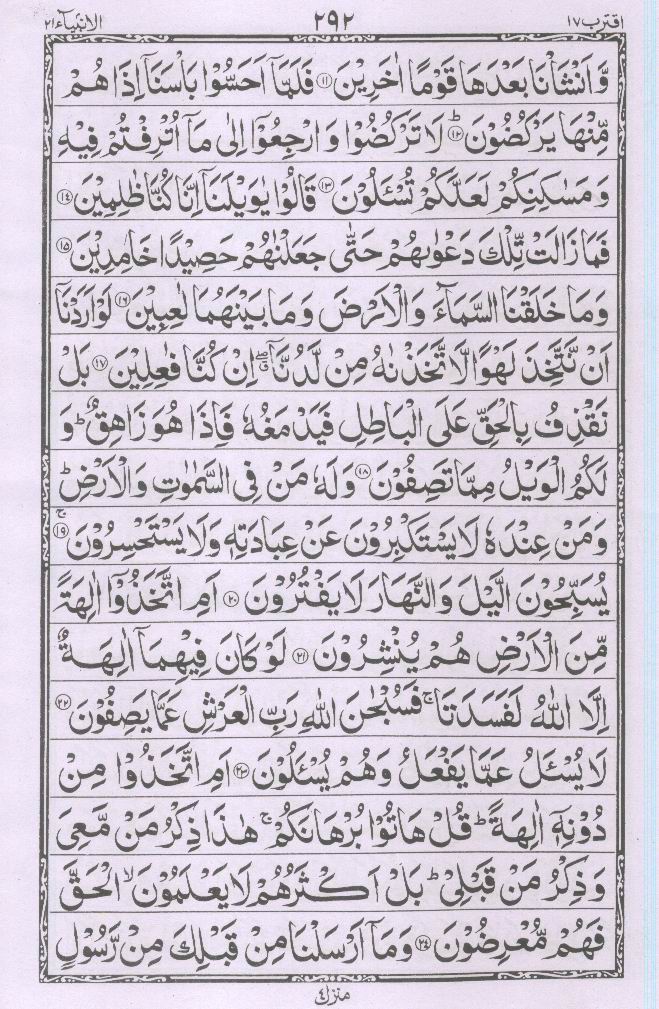 اقترب ١٧ ٢٩٢ الانبيآء ٢١
وَّاَنْشَاْنَا بَعْدَهَا قَوْمًا اٰخَرِيْنَ ⑪ فَلَمَّآ اَحَسُّوْا بَاْسَنَآ اِذَا هُمْ
مِّنْهَا يَرْكُضُوْنَ ؕ⑫ لَا تَرْكُضُوْا وَارْجِعُوْٓا اِلٰى مَآ اُتْرِفْتُمْ فِيْهِ
وَمَسٰكِنِكُمْ لَعَلَّكُمْ تُسْـَٔلُوْنَ ⑬ قَالُوْا يٰوَيْلَنَآ اِنَّا كُنَّا ظٰلِمِيْنَ ⑭
فَمَا زَالَتْ تِّلْكَ دَعْوٰىهُمْ حَتّٰى جَعَلْنٰهُمْ حَصِيْدًا خَامِدِيْنَ ⑮
وَمَا خَلَقْنَا السَّمَآءَ وَالْاَرْضَ وَمَا بَيْنَهُمَا لٰعِبِيْنَ ⑯ لَوْ اَرَدْنَآ
اَنْ نَّتَّخِذَ لَهْوًا لَّاتَّخَذْنٰهُ مِنْ لَّدُنَّآ ۖق اِنْ كُنَّا فٰعِلِيْنَ ⑰ بَلْ
نَقْذِفُ بِالْحَقِّ عَلَى الْبَاطِلِ فَيَدْمَغُهٗ فَاِذَا هُوَ زَاهِقٌ ؕ وَ
لَكُمُ الْوَيْلُ مِمَّا تَصِفُوْنَ ⑱ وَلَهٗ مَنْ فِى السَّمٰوٰتِ وَالْاَرْضِ ؕ
وَمَنْ عِنْدَهٗ لَا يَسْتَكْبِرُوْنَ عَنْ عِبَادَتِهٖ وَلَا يَسْتَحْسِرُوْنَ ۚ⑲
يُسَبِّحُوْنَ الَّيْلَ وَالنَّهَارَ لَا يَفْتُرُوْنَ ⑳ اَمِ اتَّخَذُوْٓا اٰلِهَةً
مِّنَ الْاَرْضِ هُمْ يُنْشِرُوْنَ ㉑ لَوْ كَانَ فِيْهِمَآ اٰلِهَةٌ
اِلَّا اللّٰهُ لَفَسَدَتَا ۚ فَسُبْحٰنَ اللّٰهِ رَبِّ الْعَرْشِ عَمَّا يَصِفُوْنَ ㉒
لَا يُسْـَٔلُ عَمَّا يَفْعَلُ وَهُمْ يُسْـَٔلُوْنَ ㉓ اَمِ اتَّخَذُوْا مِنْ
دُوْنِهٖٓ اٰلِهَةً ؕ قُلْ هَاتُوْا بُرْهَانَكُمْ ۚ هٰذَا ذِكْرُ مَنْ مَّعِىَ
وَذِكْرُ مَنْ قَبْلِىْ ؕ بَلْ اَكْثَرُهُمْ لَا يَعْلَمُوْنَ ۙ الْحَقَّ
فَهُمْ مُّعْرِضُوْنَ ㉔ وَمَآ اَرْسَلْنَا مِنْ قَبْلِكَ مِنْ رَّسُوْلٍ
منزل ٤